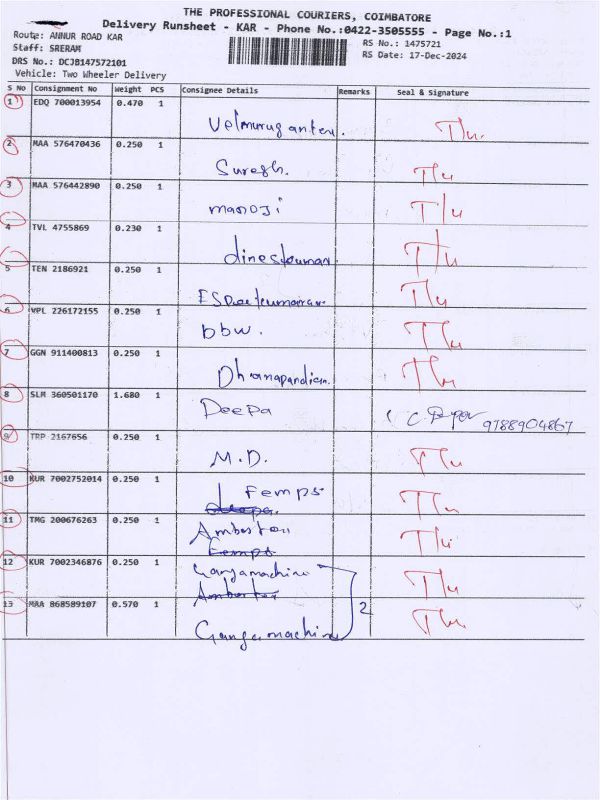 THE PROFESSIONAL COURIERS, COIMBATORE
Delivery Runsheet - KAR - Phone No.:0422-3505555 - Page No.:1
Route: ANNUR ROAD KAR
RS No.: 1475721
Staff: SRERAM
RS Date: 17-Dec-2024
DRS No.: DCJB147572101
Vehicle: Two Wheeler Delivery
S No Consignment No Weight PCS Consignee Details Remarks Seal & Signature
1 EDQ 700013954 0.470 1
2 MAA 576470436 0.250 1
Suresh.
3 MAA 576442890 0.250 1
manoji
4 TVL 4755869 0.230 1
5 TEN 2186921 0.250 1
6 VPL 226172155 0.250 1
bbw.
7 GGN 911400813 0.250 1
8 SLM 360501170 1.680 1
Deepa 9788904867
9 TRP 2167656 0.250 1
M.D.
10 KUR 7002752014 0.250 1
Femps
11 TMG 200676263 0.250 1
12 KUR 7002346876 0.250 1
Gangamachine
13 MAA 868589107 0.570 1
2
Gangamachine